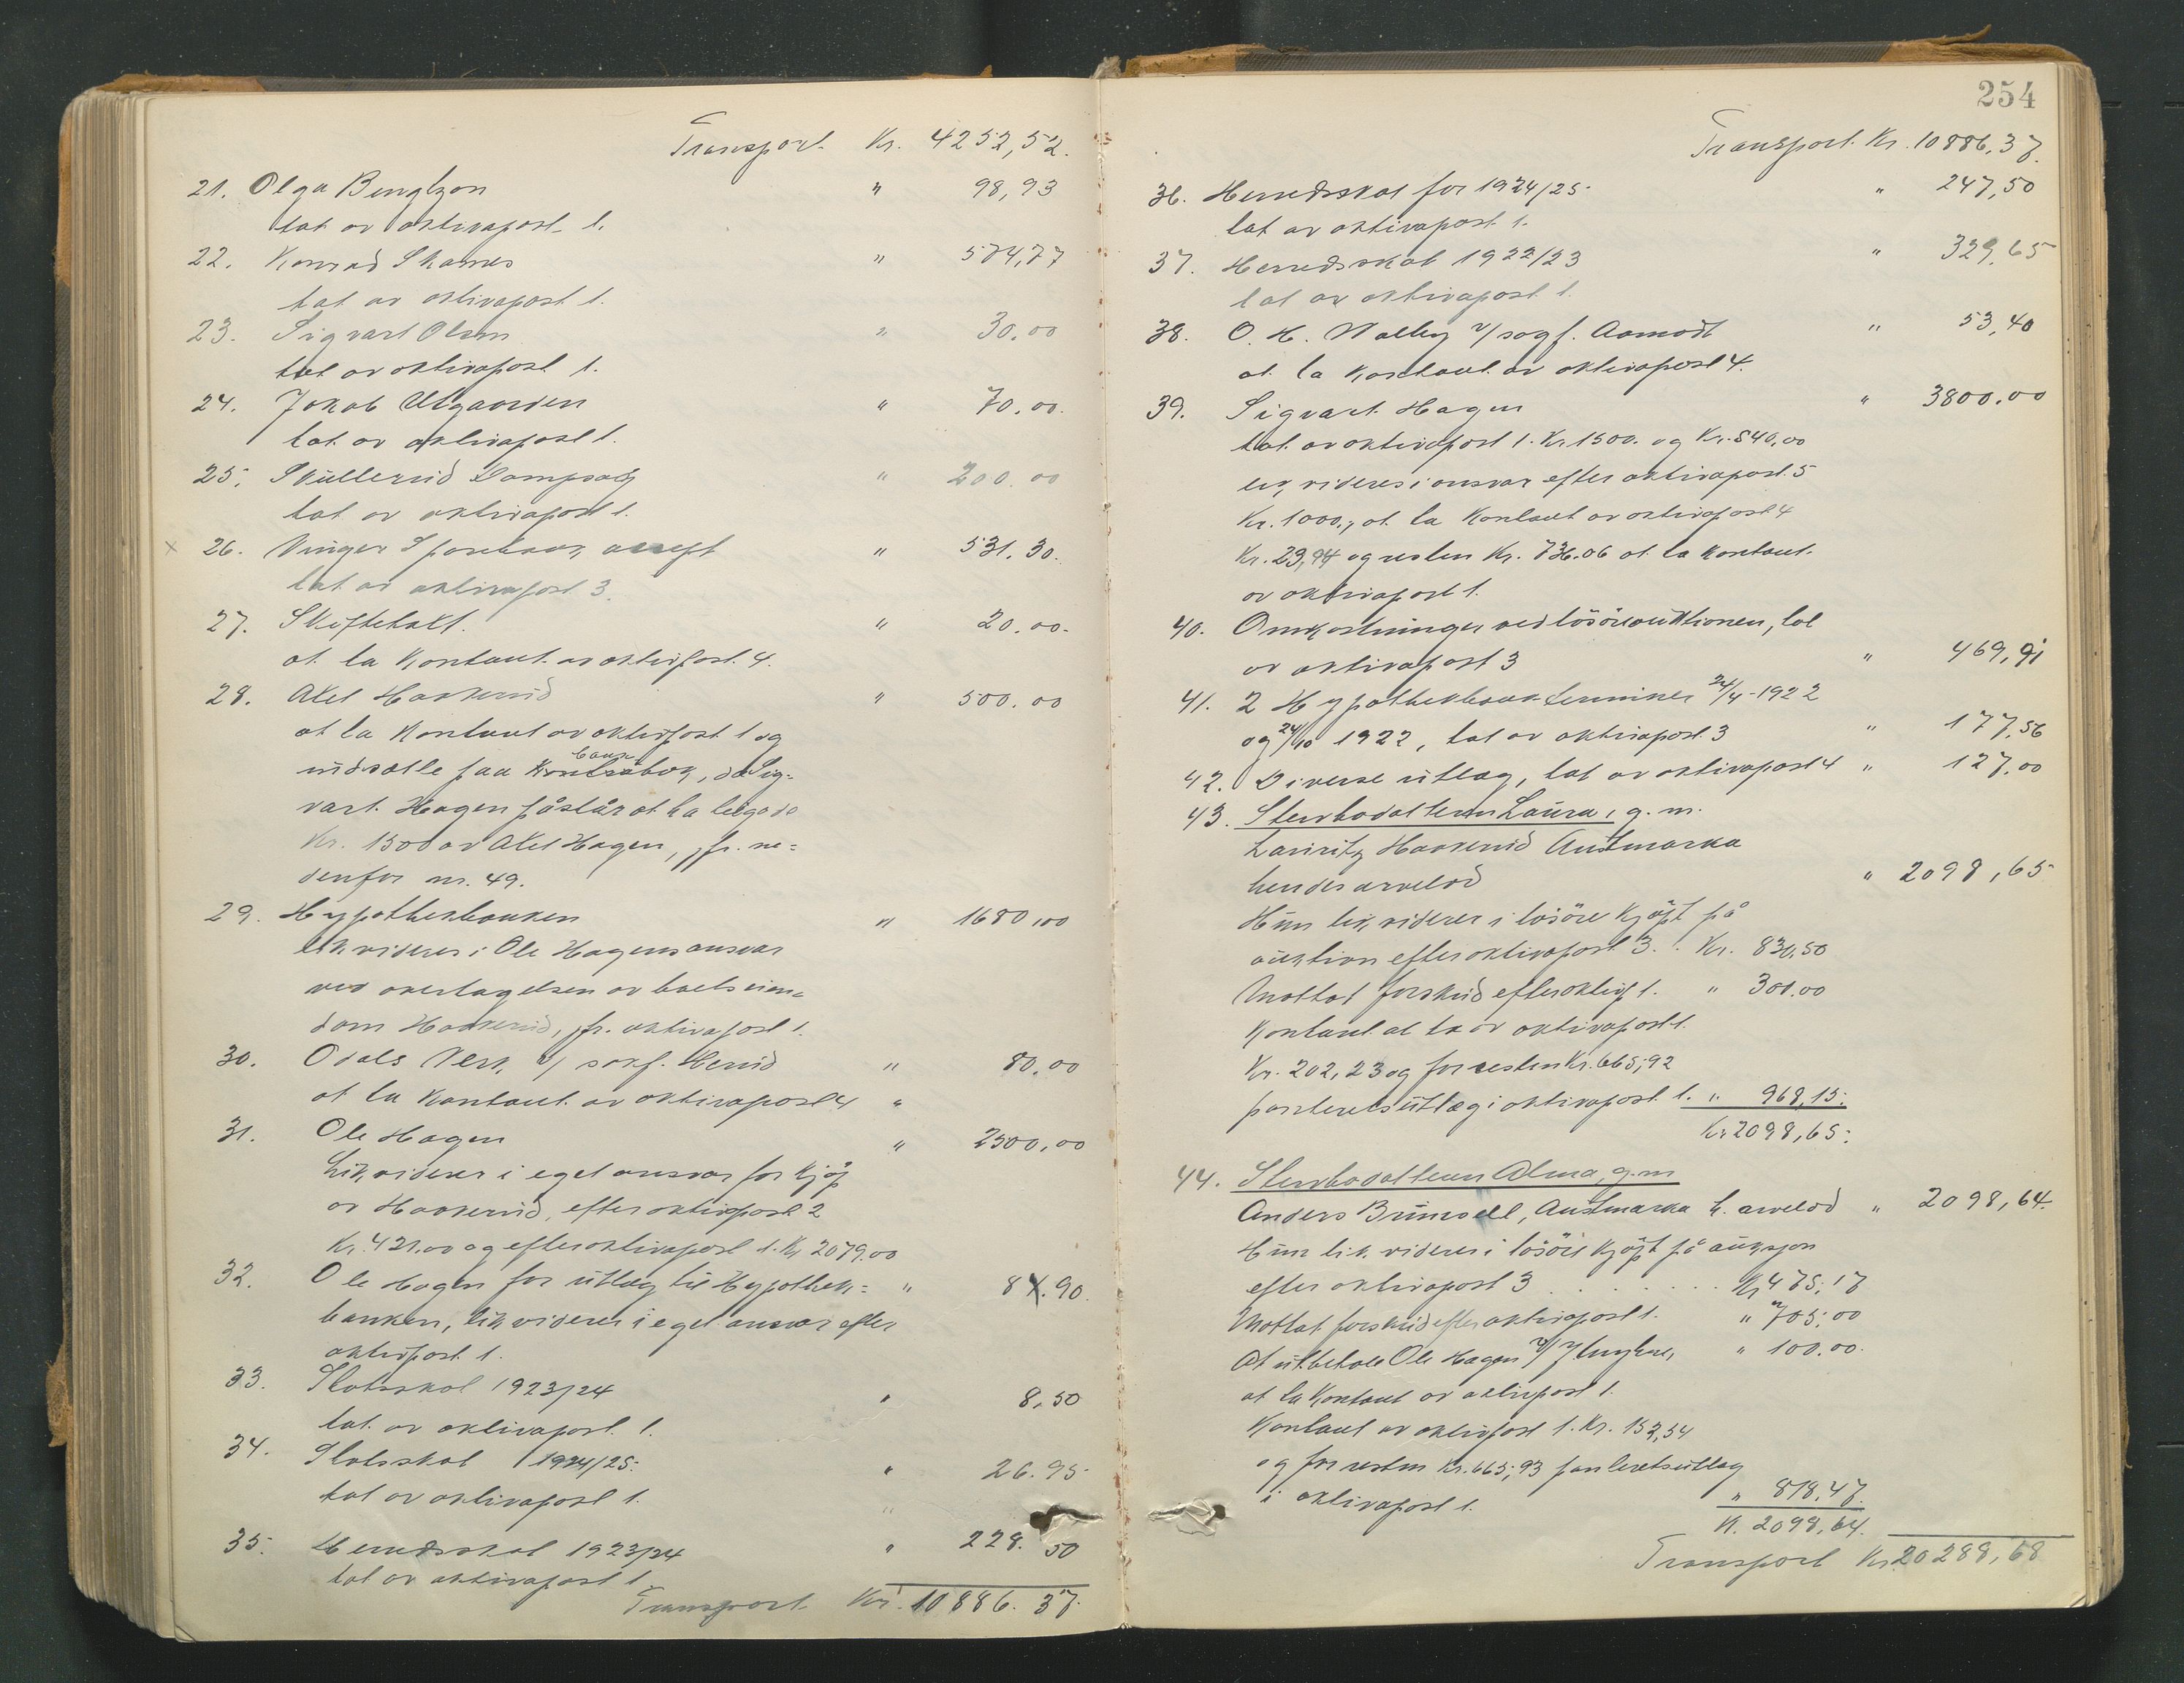 Transport. Kr. 4252,52.
21. Olga Bengtzon " 98,93
tat av aktivapost 1.
22. Konrad Skarnes " 574,77
tat av aktivapost 1.
23. Sigvart Olsen " 30.00
tat av aktivapost 1.
24. Jakob Utgaarden " 70.00.
tat av aktivapost 1.
25. Skullerud Dampsag " 200.00
tat av aktivapost 1.
x 26. Vinger Sparebank, accept " 531.30.
tat av aktivapost 3.
27. Skiftetakt. " 20.00.
at ta kontant av aktivpost. 4.
28. Axel Haakerud " 500.00
at ta kontant av aktivpost 1 og
indsætte paa bank
bok, da Sig-
vart Hagen påstår at ha tilgode
Kr. 1500 av Axel Hagen, jfr. ne-
denfor nr. 49.
29. Hypothekbanken " 1680,00
likvideres i Ole Hagens ansvar
ved overtagelsen av boets eien-
dom Haakerud, jfr. aktivapost 1.
30. Odals Verk v/ sakf. Herud " 80.00
at ta kontant av aktivapost 4 "
31. Ole Hagen " 2500,00
Likviderer i eget ansvar for kjøp
av Haakerud, efter aktivpost 2
Kr. 421.00 og efter aktivapost 1. Kr 2079.00
32. Ole Hagen for utlæg til Hypothek- " 84.90.
banken, likviderer i eget ansvar efter
aktivpost 1.
33. Statsskat 1923/24 " 8,50
tat av aktivapost 1.
34. Statsskat 1924/25. " 26.95
tat av aktivapost 1. "
35. Herredsskat 1923/24 " 228.50
tat av aktivapost 1
Transport Kr. 10886.37.
254
Transport. Kr. 10886,37.
36. Herredsskat for 1924/25. " 247,50
tat av aktivapost 1.
37. Herredsskat 1922/23 " 329,65
tat av aktivapost 1.
38. O. H. Walby v/ sagf. Aamodt " 53,40
at ta kontant av aktivapost 4.
39. Sigvart Hagen " 3800.00
tat av aktivapost 1. Kr 1500. og Kr. 540,00
likvideres i ansvar efter aktivapost. 5
Kr. 1000,, at ta kontant av aktivapost 4
Kr. 23,94 og resten Kr. 736.06 at ta kontant
av aktivapost 1.
40. Omkostninger ved løsøreauktionen, tat
av aktivapost 3 " 469,91
41. 2 Hypothekbank-terminer 24/4-1922
og 24/10 1922, tat av aktivapost 3 " 177,56
42. Diverse utlæg, tat av aktivapost 4 " 127,00
43. Stervbodatteren Laura, g. m.
Lauritz Haakerud Austmarka
hendes arvelod " 2098,65
Hun likviderer i løsøre kjøpt på
auktion efter aktivapost 3. . Kr. 830,50
Mottat forskud efter aktivp. 1. " 300.00
kontant at ta av aktivapost 1.
Kr. 202,23 og for resten Kr. 665,92
panteretsutlæg i aktivapost 1. " 968,15.
Kr 2098,65.
44. Stervbodatteren Alma, g. m
Anders Brunsell, Austmarka h. arvelod " 2098,64.
Hun likviderer i løsøre kjøpt på auksjon
efter aktivapost 3 . . . . . . . Kr 475,17
Mottat forskud efter aktivapost 1. " 705,00
At utbetale Ole Hagen v/ " 100.00.
at ta kontant av aktivpost 1.
kontant av aktivpost 1. Kr. 152,54
og for resten Kr. 665,93 panteretsutlæg
i aktivapost 1. " 818.47.
Kr. 2098,64.
Transport Kr. 20288,68